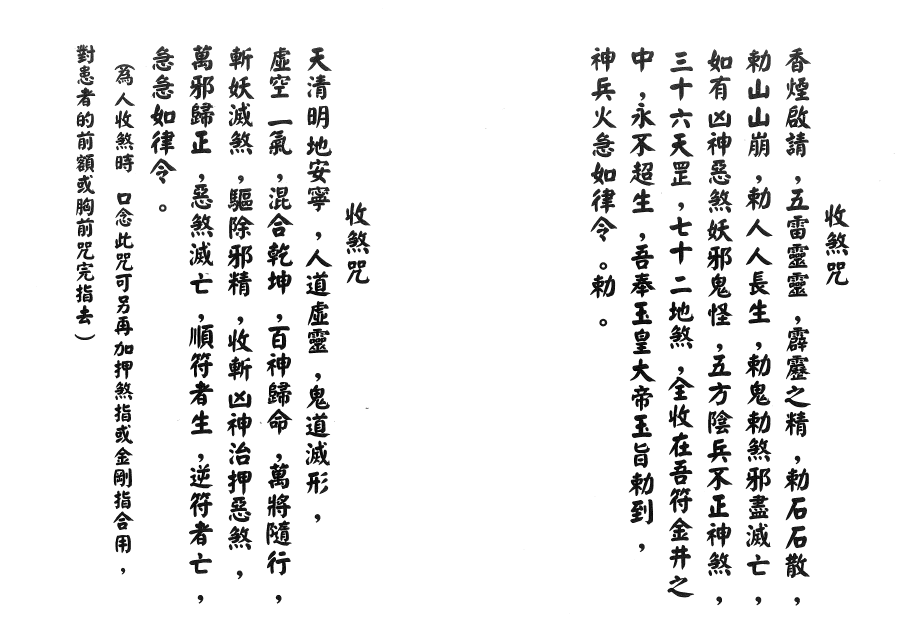 收煞咒
香煙啟請，五雷靈靈，霹靂之精，勅石石散，
勅山山崩，勅人人長生，勅鬼勅煞邪盡滅亡，
如有凶神惡煞妖邪鬼怪，五方陰兵不正神煞，
三十六天罡，七十二地煞，全收在吾符金井之
中，永不超生，吾奉玉皇大帝玉旨勅到，
神兵火急如律令。勅。
收煞咒
天清明地安寧，人道虛靈，鬼道滅形，
虛空一氣，混合乾坤，百神歸命，萬將隨行，
斬妖滅煞，驅除邪精，收斬凶神治押惡煞，
萬邪歸正，惡煞滅亡，順符者生，逆符者亡，
急急如律令。
（為人收煞時　口念此咒可另再加押煞指或金剛指合用，
對患者的前額或胸前咒完指去）